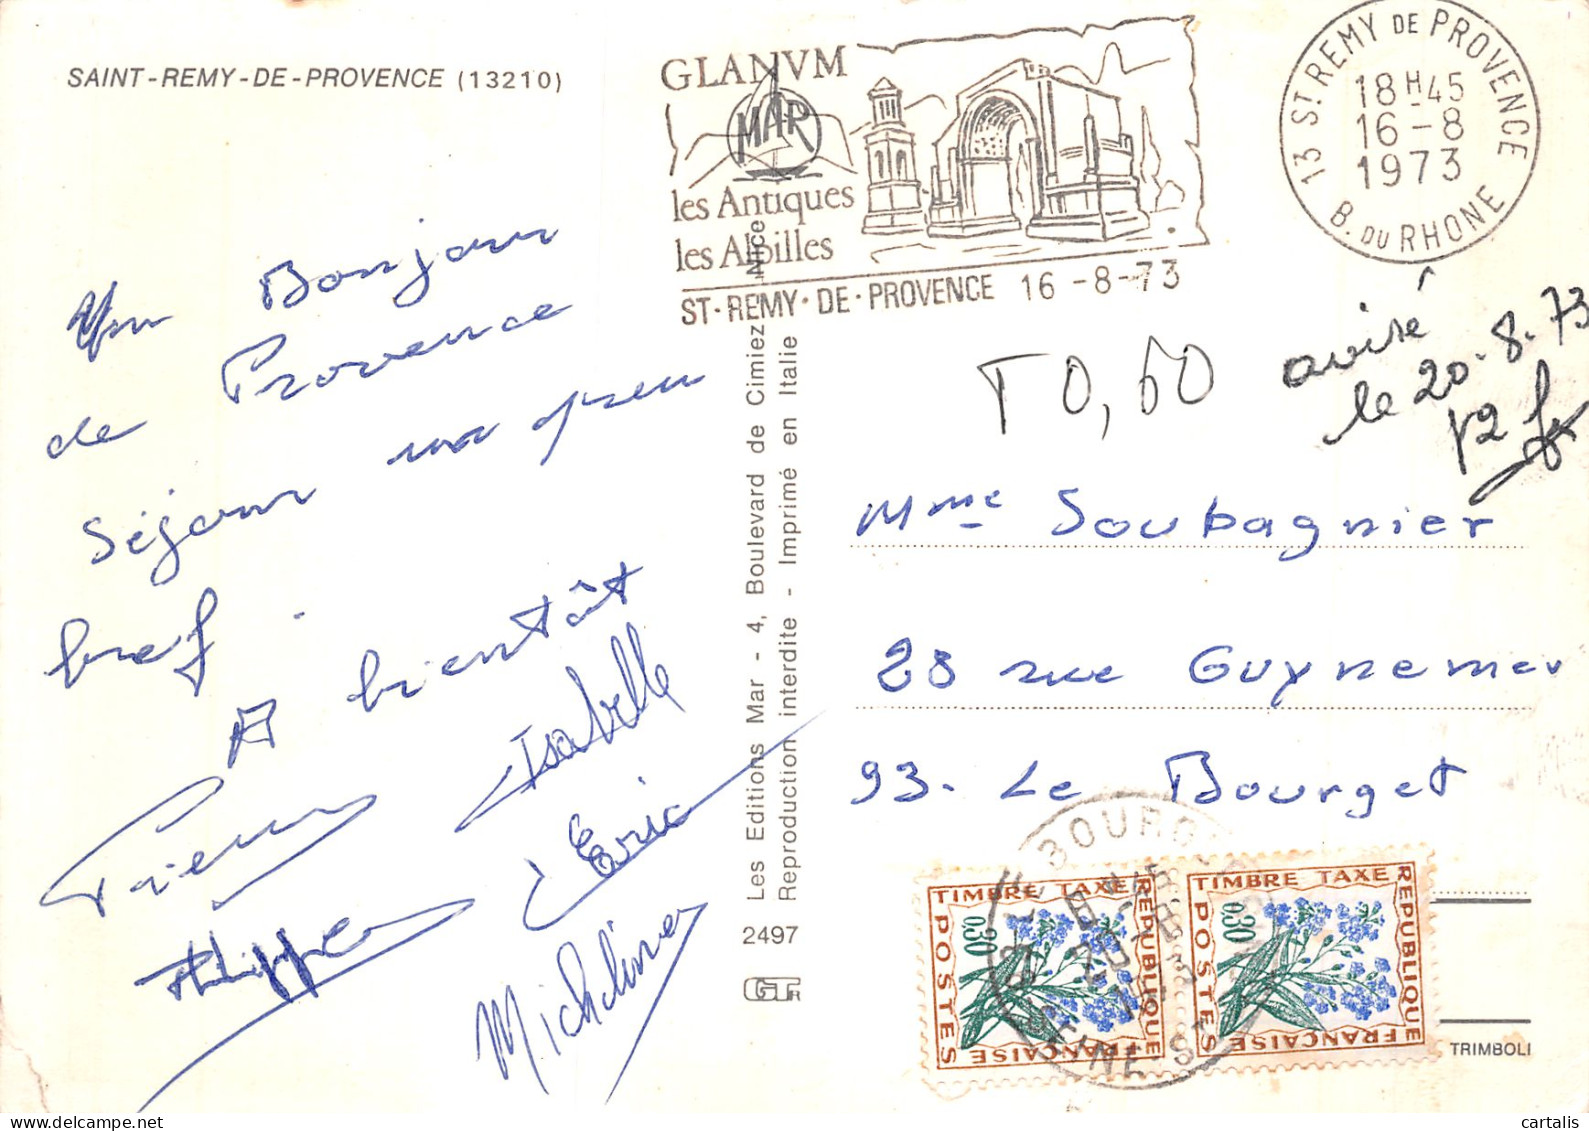 SAINT-REMY-DE-PROVENCE (13210)
GLANVM
MAR
les Antiques
les Alpilles
ST-REMY·DE·PROVENCE 16-8-73
13 ST REMY DE PROVENCE
18H45
16-8
1973
B. DU RHONE
Un Bonjour
de Provence
séjour un peu
bref.
A bientôt
Pierre
Isabelle
Philippe
Eric
Micheline
Les Editions Mar - 4, Boulevard de Cimiez - Nice
Reproduction interdite - Imprimé en Italie
2497
T 0,60
avisé
le 20.8.73
Mme Soubagnier
28 rue Guynemer
93. Le Bourget
LE BOURGET
SEINE-ST
TIMBRE TAXE
REPUBLIQUE
FRANÇAISE
POSTES
0,30
TIMBRE TAXE
REPUBLIQUE
FRANÇAISE
POSTES
0,30
TRIMBOLI